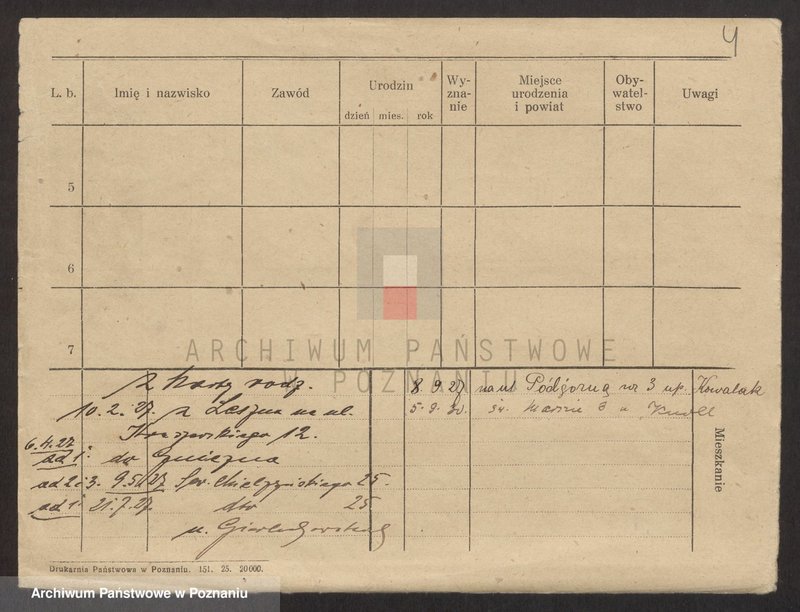 4
L. b.
Imię i nazwisko
Zawód
Urodzin
dzień mies. rok
Wy-
zna-
nie
Miejsce
urodzenia
i powiat
Oby-
watel-
stwo
Uwagi
5
6
7
ARCHIWUM PAŃSTWOWE
W POZNANIU
z karty rodz.
10. 2. 27. z Leszna na ul.
12.
6.4.27
ad 1. do Gniezna
ad 2 i 3. 9.5.27 Sew. Mielżyńskiego 25.
ad 1. 21.7.27. dto 25
u.
8 9. 27 na ul Podgórną nr 3 up. Kowalak
5. 9. św. Marcin u Knoll
Mieszkanie
Drukarnia Państwowa w Poznaniu. 151. 25. 20000.
Archiwum Państwowe w Poznaniu